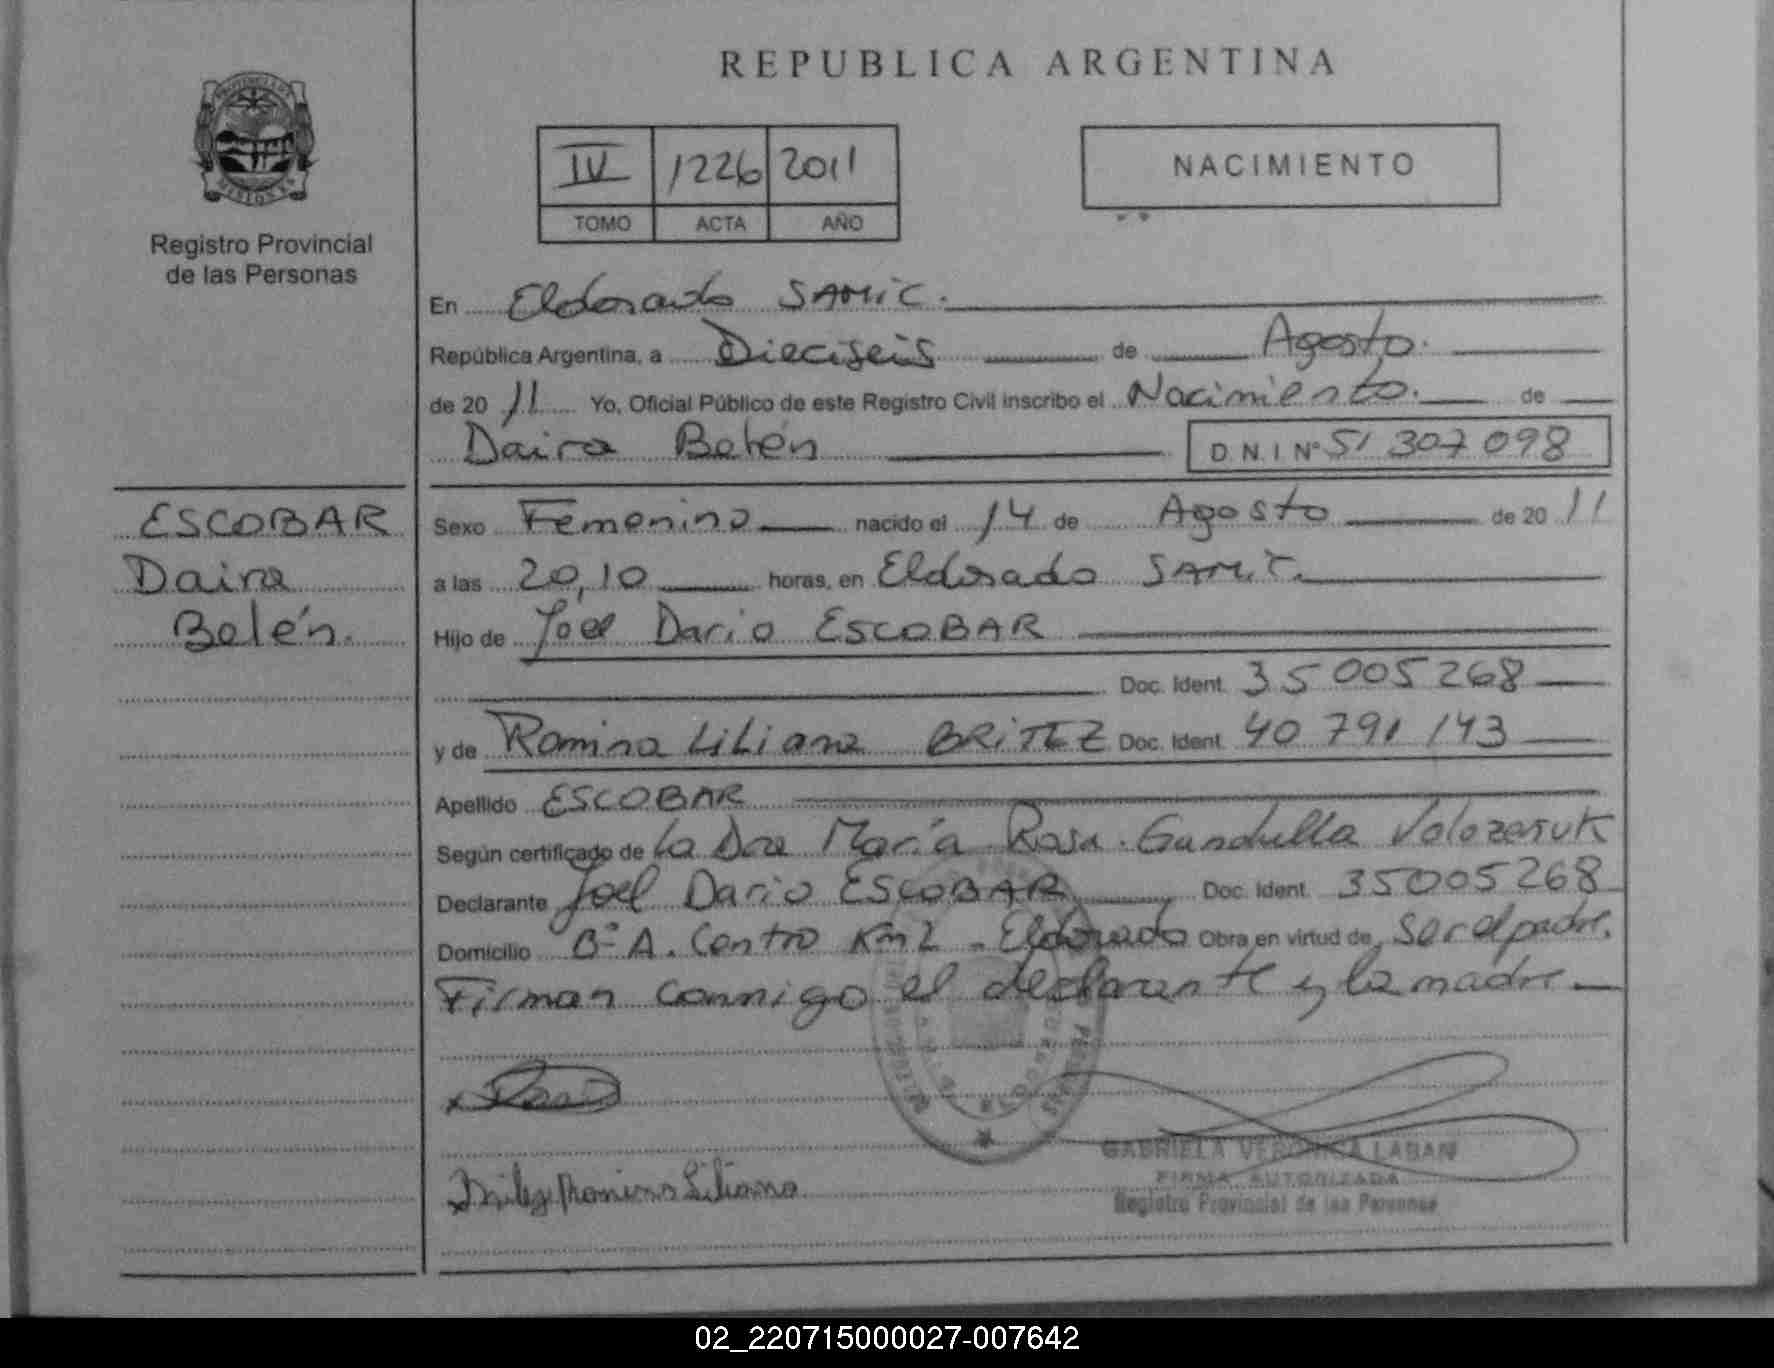 REPUBLICA ARGENTINA
IV 1226 2011
TOMO ACTA AÑO
NACIMIENTO
PROVINCIA DE
MISIONES
Registro Provincial
de las Personas
En Eldorado SAMIC.
República Argentina, a Dieciseis de Agosto.
de 20 11 Yo, Oficial Público de este Registro Civil inscribo el Nacimiento. de
Daira Belén D.N.I Nº 51 307 098
ESCOBAR
Daira
Belén.
Sexo Femenino nacido el 14 de Agosto de 20 11
a las 20,10 horas, en Eldorado SAMIC.
Hijo de Joel Dario ESCOBAR
Doc. Ident. 35 005 268
y de Romina Liliana BRITEZ Doc. Ident. 40 791 143
Apellido ESCOBAR
Según certificado de La Dra María Rosa
Declarante Joel Dario ESCOBAR Doc. Ident. 35005268
Domicilio Bº A. Centro Km 2 - Eldorado Obra en virtud de Ser el padre.
Firman conmigo el declarante y la madre
Romina Liliana
GABRIELA VERONICA LABAN
FIRMA AUTORIZADA
Registro Provincial de las Personas
02_220715000027-007642